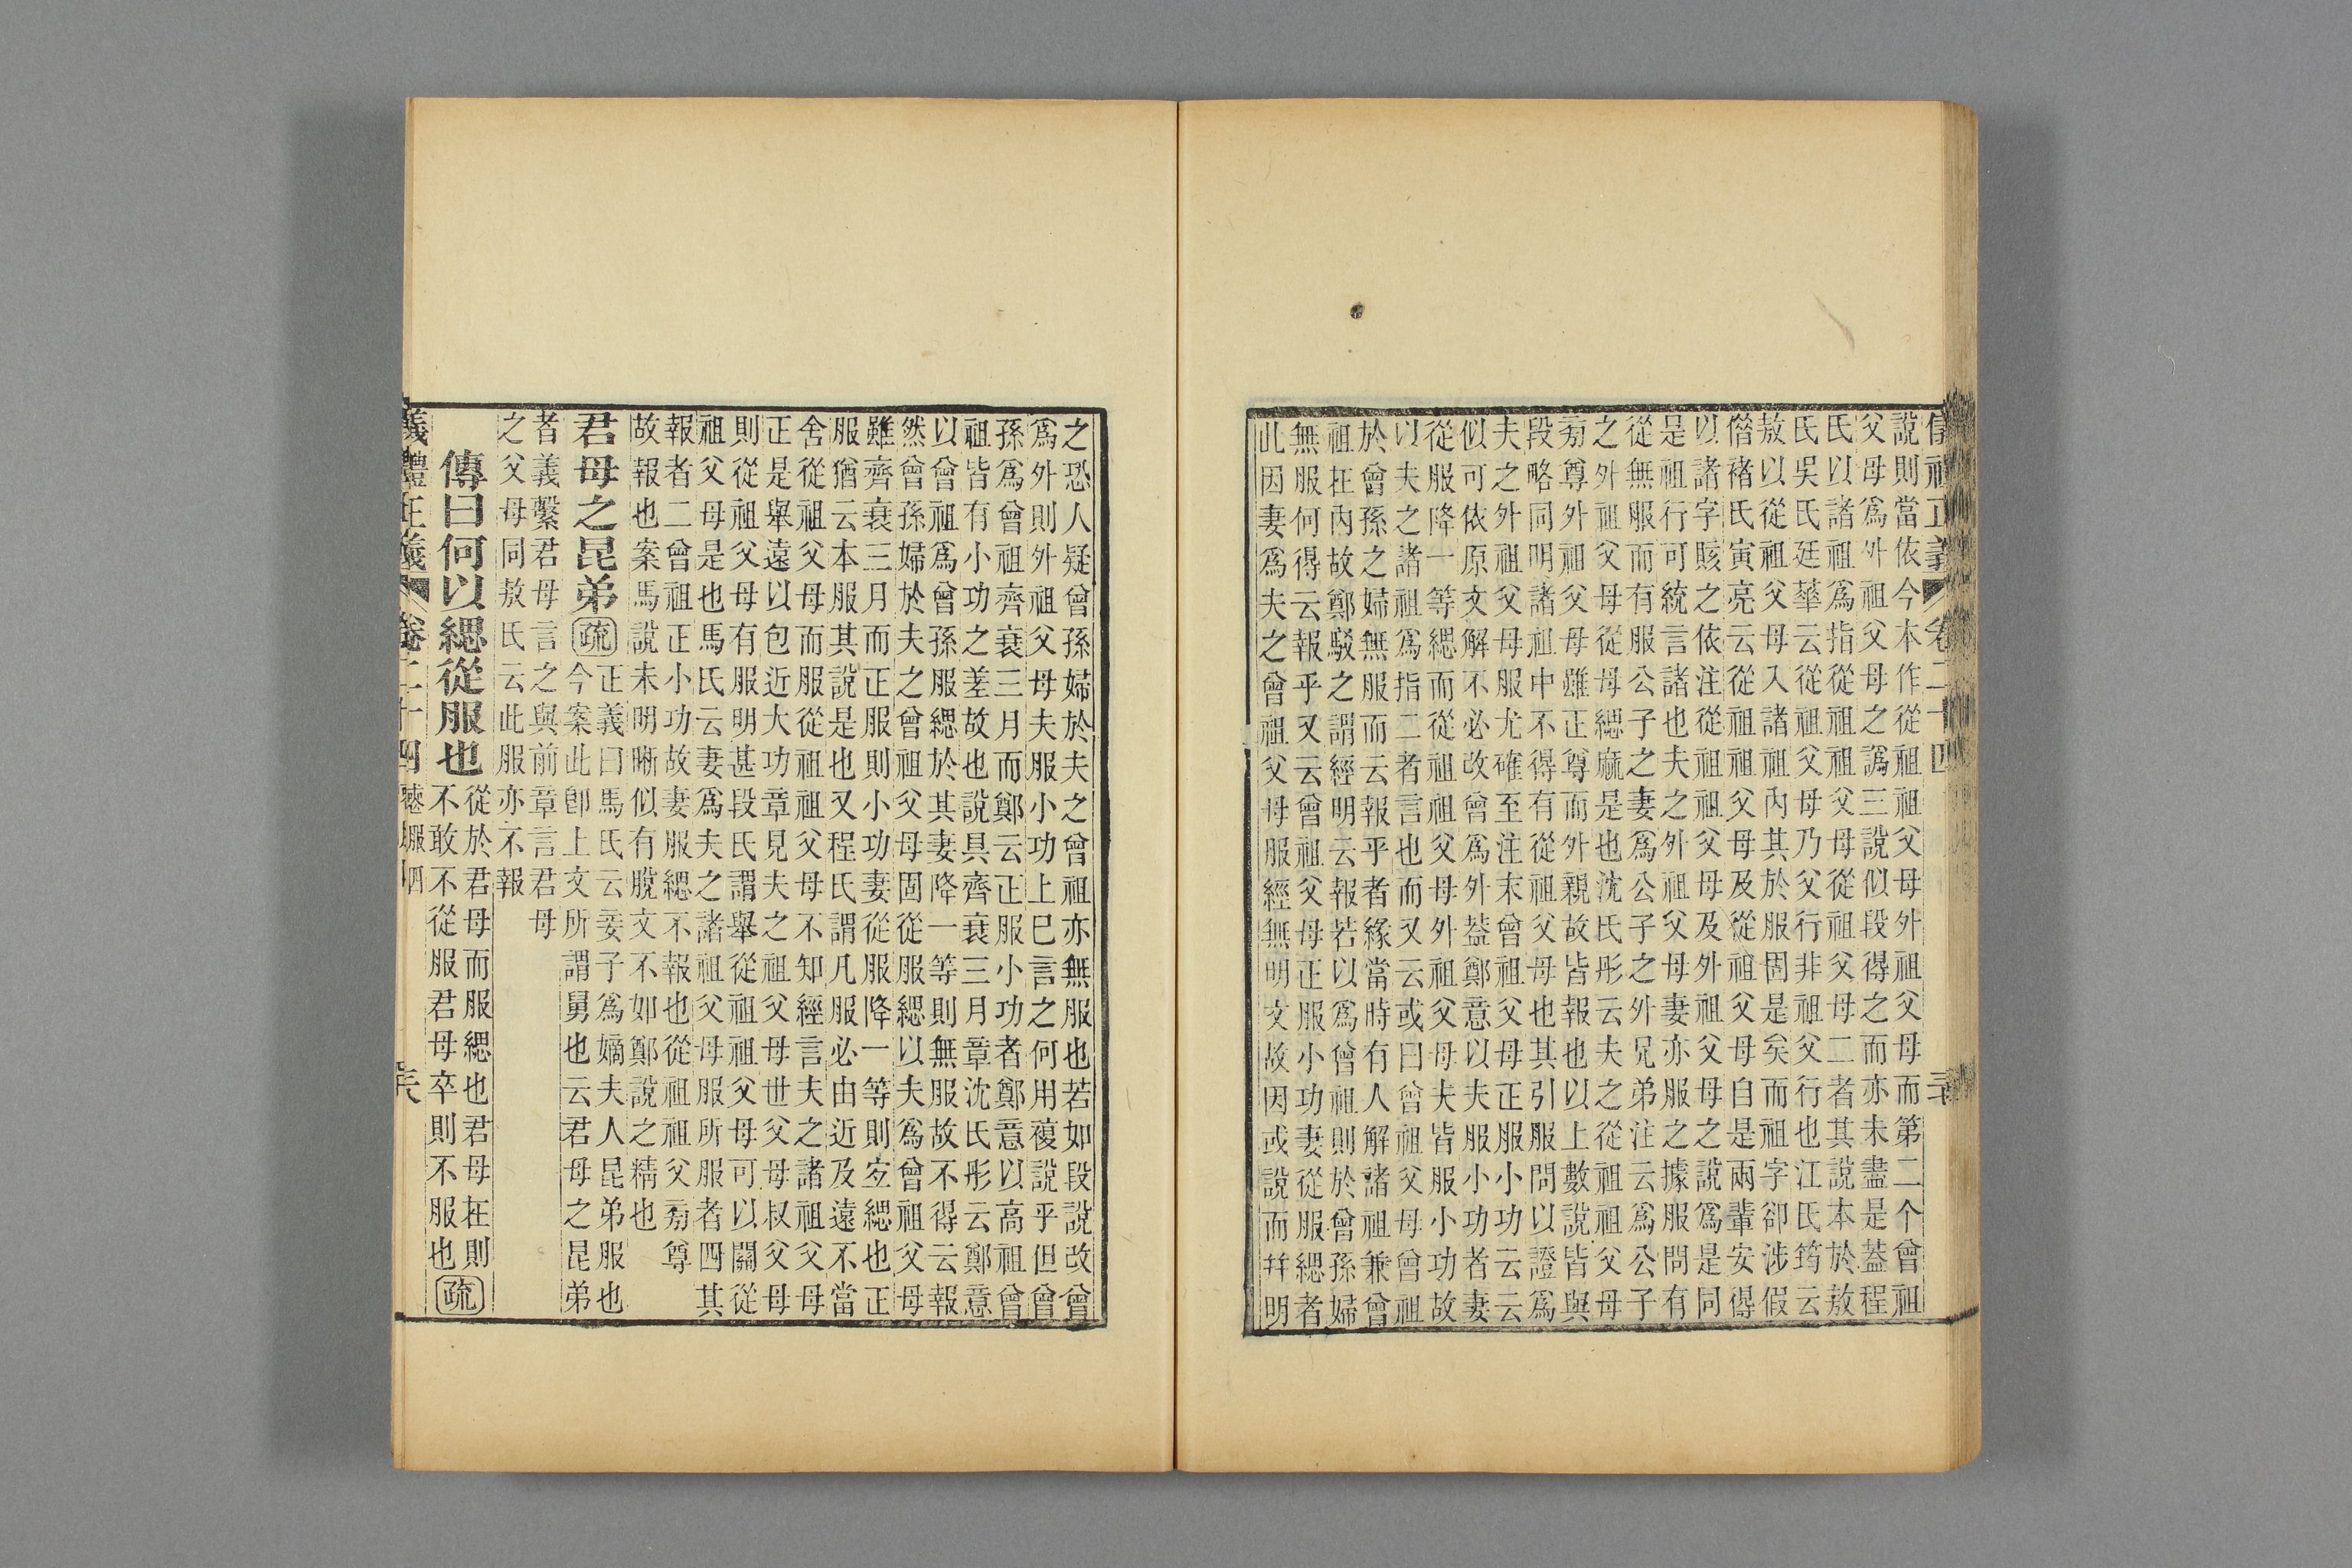 說則當依今本作從祖祖父母外祖父母而第二个曾祖
父母爲外祖父母之譌三說似段得之而亦未盡是蓋程
氏以諸祖爲指從祖祖父母從祖父母二者其說本於敖
氏吳氏廷華云從祖父母乃父行非祖父行也江氏筠云
敖以從祖父母入諸祖內其於服固是矣而祖字卻涉假
僭褚氏寅亮云從祖祖父母及從祖父母自是兩輩安得
以諸字賅之依注從祖祖父母及外祖父母之說爲是同
是祖行可統言諸也夫之外祖父母妻亦服之據服問有
從無服而有服公子之妻爲公子之外兄弟注云爲公子
之外祖父母從母緦麻是也沈氏彤云夫之從祖祖父母
旁尊外祖父母雖正尊而外親故皆報也以上數說皆與
段略同明諸祖中不得有從祖父母也其引服問以證爲
夫之外祖父母服尤確至注末曾祖父母正服小功云云
似可依原文解不必改曾爲外蓋鄭意以夫服小功者妻
從服降一等緦而從祖祖父母外祖父母夫皆服小功故
以夫之諸祖爲指二者言也而又云或曰曾祖父母曾祖
於曾孫之婦無服而云報乎者緣當時有人解諸祖兼曾
祖在內故鄭駁之謂經明云報若以爲曾祖則於曾孫婦
無服何得云報乎又云曾祖父母正服小功妻從服緦者
此因妻爲夫之曾祖父母服經無明文故因或說而幷明
之恐人疑曾孫婦於夫之曾祖亦無服也若如段說改曾
爲外則外祖父母夫服小功上巳言之何用複說乎但曾
孫爲曾祖齊衰三月而鄭云正服小功者鄭意以高祖曾
祖皆有小功之差故也說具齊衰三月章沈氏彤云鄭意
以曾祖爲曾孫服緦於其妻降一等則無服故不得云報
然曾孫婦於夫之曾祖父母固從服緦以夫爲曾祖父母
雖齊衰三月而正服則小功妻從服降一等則宜緦也正
服猶云本服其說是也又程氏謂凡服必由近及遠不當
舍從祖父母而服從祖祖父母不知經言夫之諸祖父母
正是舉遠以包近大功章見夫之祖父母世父母叔父母
則從祖父母有服明甚段氏謂舉從祖祖父母可以關從
祖父母是也馬氏云妻爲夫之諸祖父母服所服者四其
報者二曾祖正小功故妻服緦不報也從祖祖父旁尊
故報也案馬說未明晰似有脫文不如鄭說之精也
君母之昆弟疏正義曰馬氏云妾子爲嫡夫人昆弟服也
今案此卽上文所謂舅也云君母之昆弟
者義繫君母言之與前章言君母
之父母同敖氏云此服亦不報
傳曰何以緦從服也從於君母而服緦也君母在則
不敢不從服君母卒則不服也疏